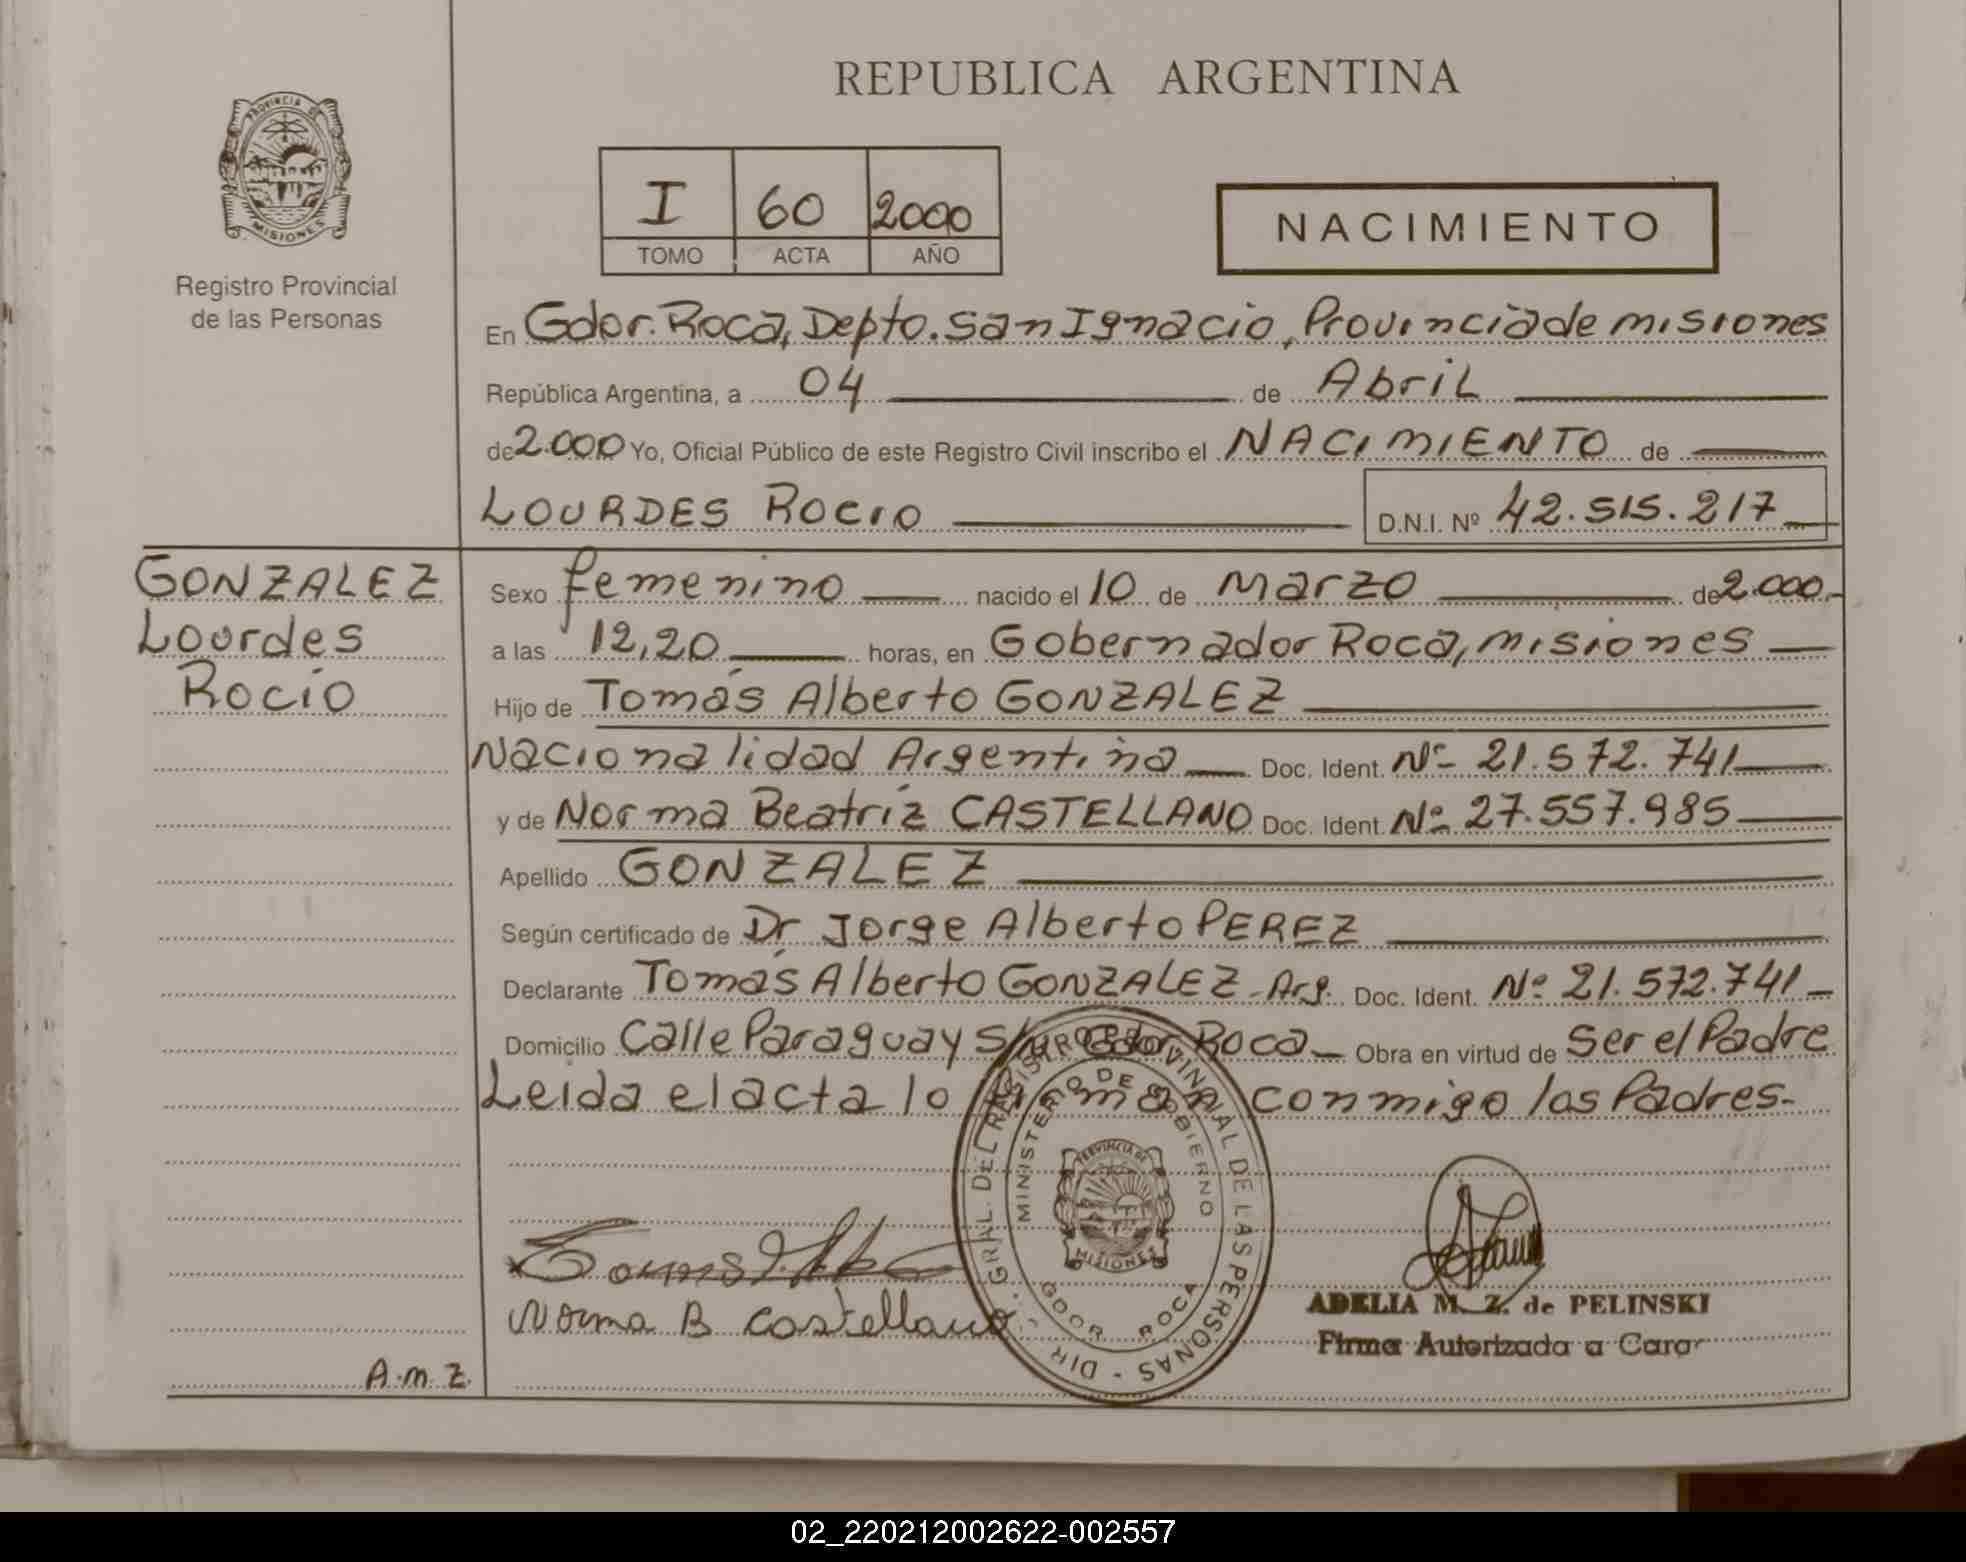 REPUBLICA ARGENTINA
PROVINCIA DE
MISIONES
Registro Provincial
de las Personas
I 60 2000
TOMO ACTA AÑO
NACIMIENTO
En Gdor. Roca, Depto. San Ignacio, Provincia de misiones
República Argentina, a 04 de Abril
de 2.000 Yo, Oficial Público de este Registro Civil inscribo el NACIMIENTO de
LOURDES ROCIO D.N.I. Nº 42.515.217
GONZALEZ
Lourdes
Rocío
Sexo femenino nacido el 10 de Marzo de 2.000.-
a las 12,20 horas, en Gobernador Roca, misiones
Hijo de Tomás Alberto GONZALEZ
Nacionalidad Argentina Doc. Ident. Nº 21.572.741
y de Norma Beatríz CASTELLANO Doc. Ident. Nº 27.557.985
Apellido GONZALEZ
Según certificado de Dr Jorge Alberto PEREZ
Declarante Tomás Alberto GONZALEZ - Arg. Doc. Ident. Nº 21.572.741
Domicilio Calle Paraguay s/n Gdor Roca Obra en virtud de Ser el Padre
Leida el acta lo firman conmigo los Padres.-
DIR. GRAL. DEL REGISTRO PROVINCIAL DE LAS PERSONAS -
MINISTERIO DE GOBIERNO
PROVINCIA DE
MISIONES
GDOR ROCA
Norma B Castellano
ADELIA M. Z. de PELINSKI
Firma Autorizada a Cargo
A.M.Z.
02_220212002622-002557